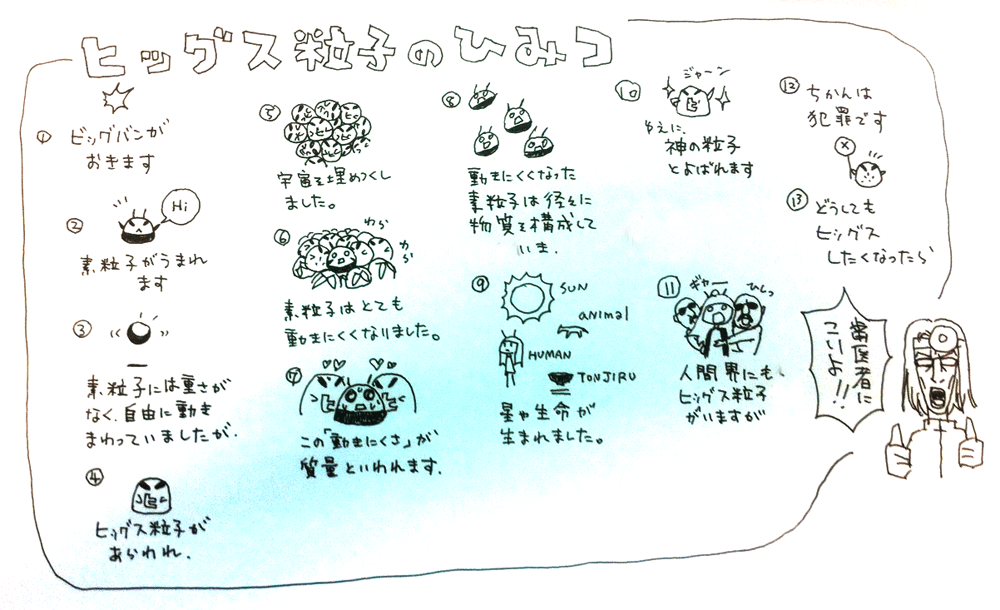 ヒッグス粒子のひみつ
①
ビッグバンが
おきます
②
Hi
素粒子がうまれ
ます
③
素粒子には重さが
なく、自由に動き
まわっていましたが、
④
ヒッグス粒子が
あらわれ、
⑤
宇宙を埋めつくし
ました。
⑥
わら
わら
素粒子はとても
動きにくくなりました。
⑦
この「動きにくさ」が
質量といわれます。
⑧
動きにくくなった
素粒子は径々に
物質を構成して
いき、
⑨
SUN
animal
HUMAN
TONJIRU
星や生命が
生まれました。
⑩
ジャーン
ゆえに、
神の粒子
とよばれます
⑪
ギャー
ひしっ
人間界にも、
ヒッグス粒子
がいますが
⑫
ちかんは
犯罪です
⑬
どうしても
ヒッグス
したくなったら
歯医者に
こいよ!!